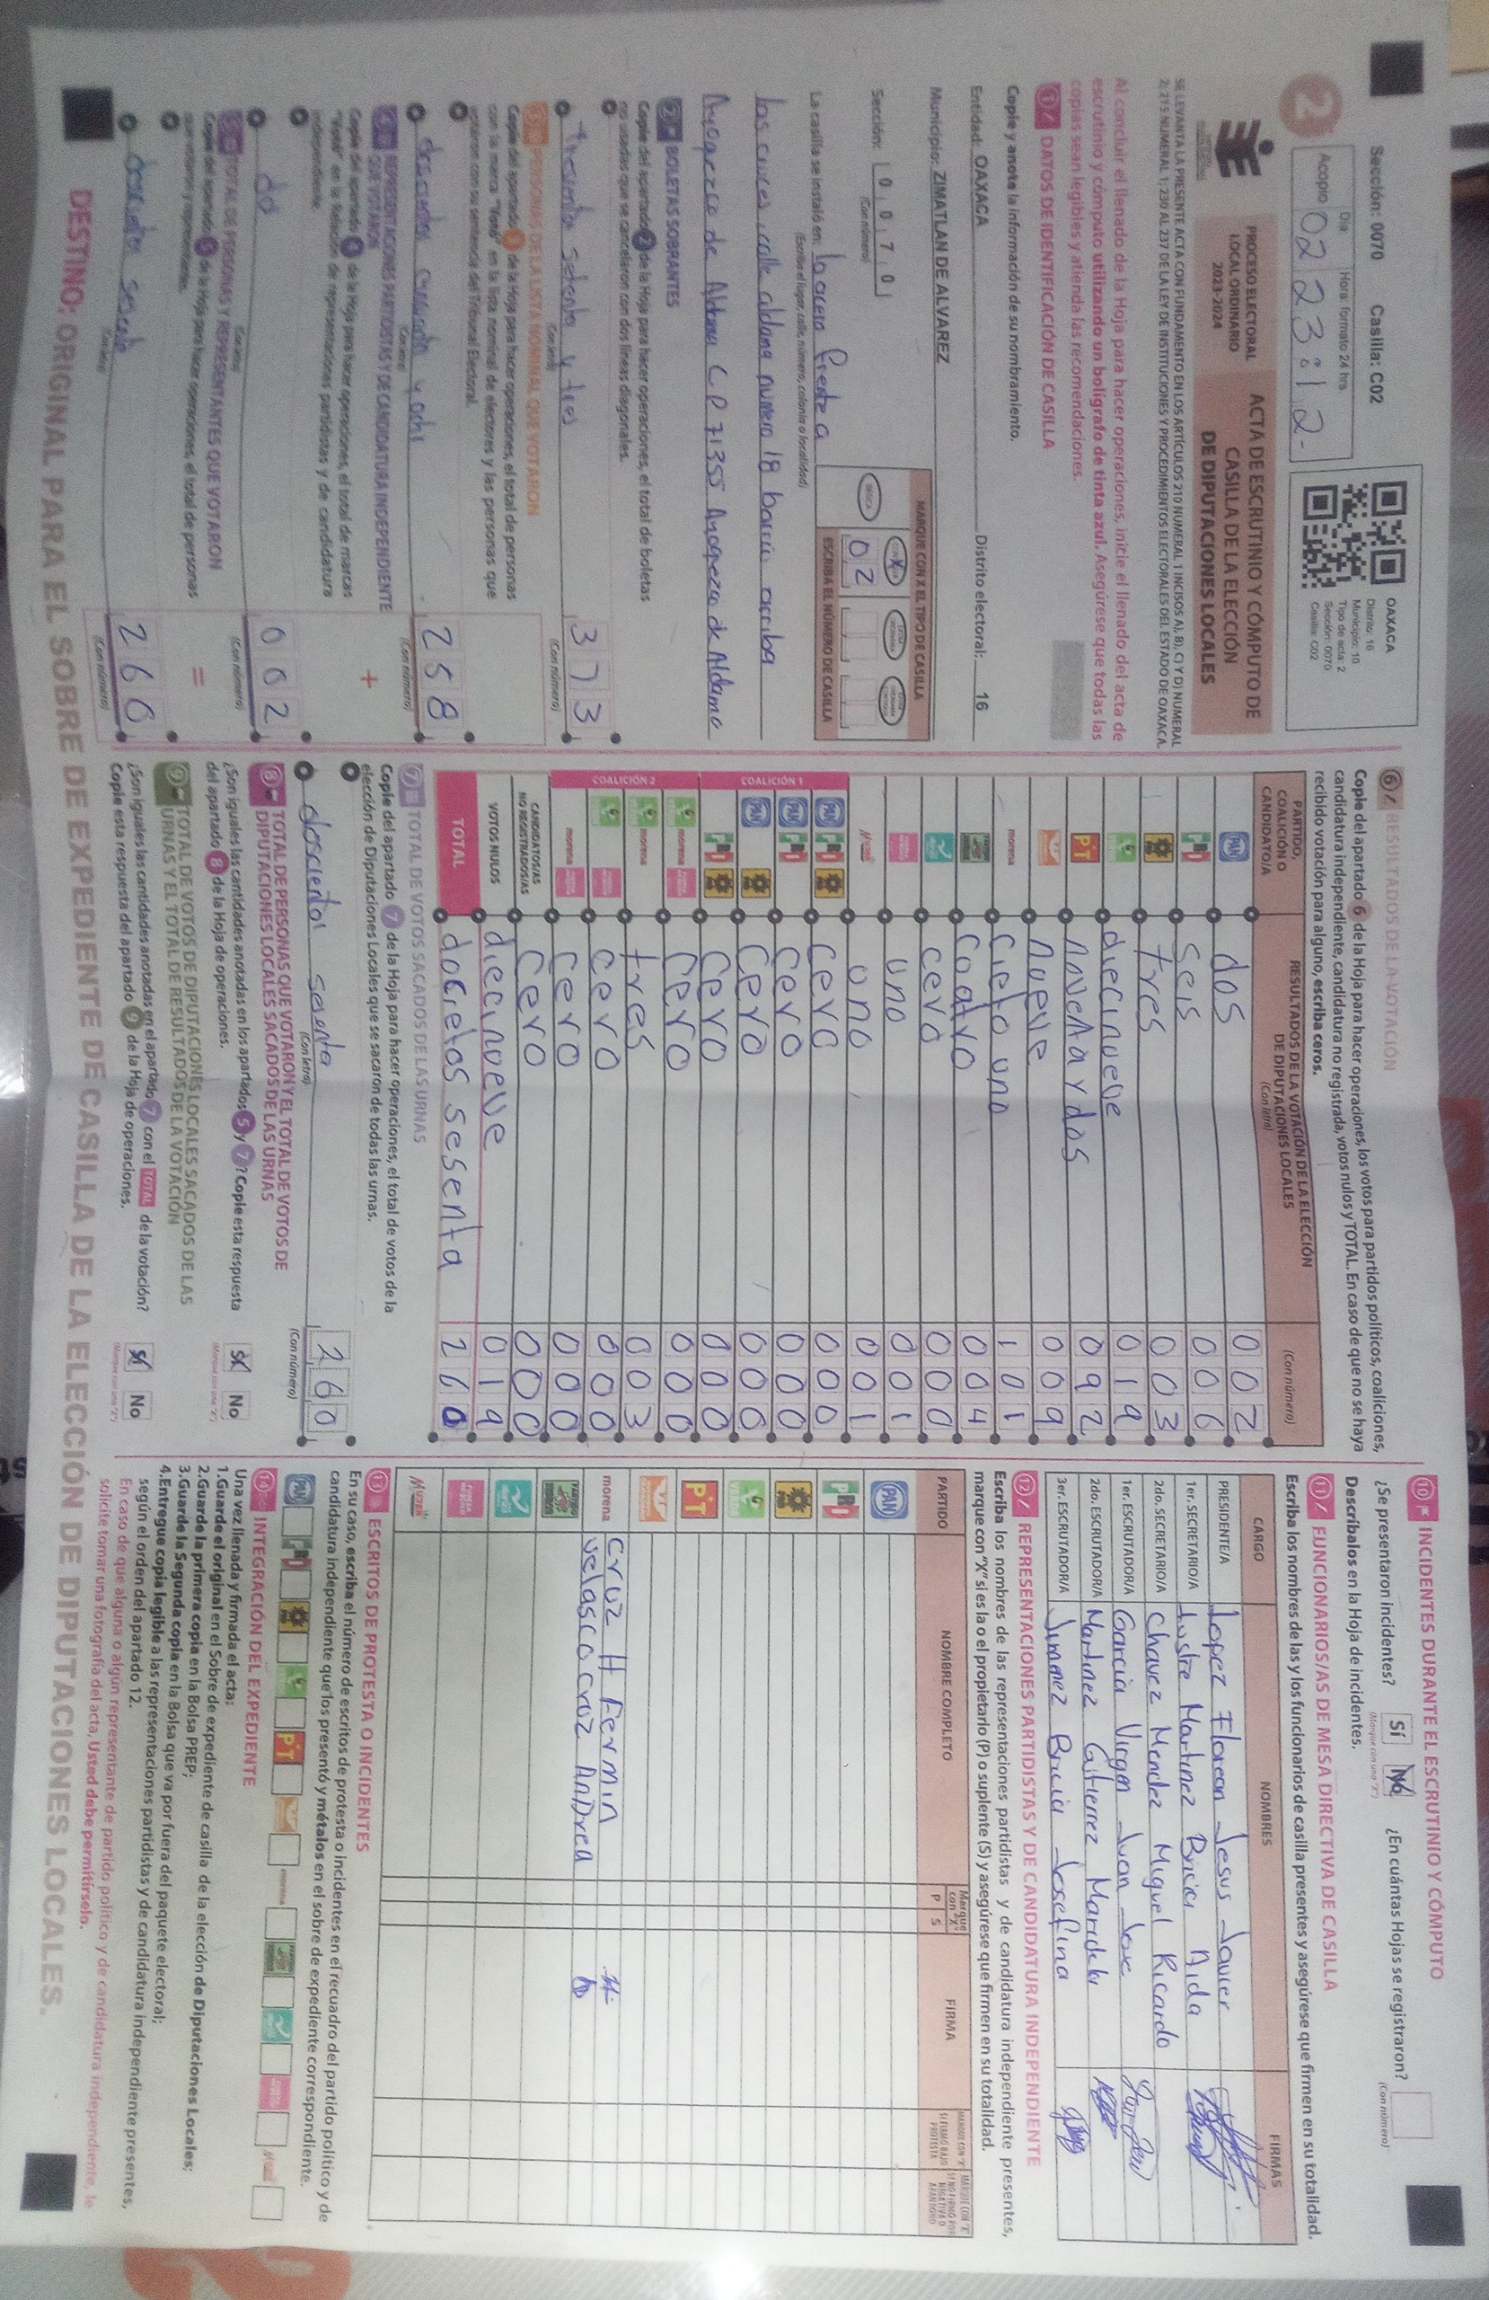 Sección: 0070 Casilla: C02
Día Hora: formato 24 hrs.
Acopio 02 23:12
OAXACA
Distrito: 16
Municipio: 10
Tipo de acta: 2
Sección: 0070
Casilla: C02
PROCESO ELECTORAL
LOCAL ORDINARIO
2023-2024
ACTA DE ESCRUTINIO Y CÓMPUTO DE
CASILLA DE LA ELECCIÓN
DE DIPUTACIONES LOCALES
SE LEVANTA LA PRESENTE ACTA CON FUNDAMENTO EN LOS ARTÍCULOS 210 NUMERAL 1 INCISOS A), B), C) Y D) NUMERAL
2; 215 NUMERAL 1; 230 AL 237 DE LA LEY DE INSTITUCIONES Y PROCEDIMIENTOS ELECTORALES DEL ESTADO DE OAXACA.
Al concluir el llenado de la Hoja para hacer operaciones, inicie el llenado del acta de
escrutinio y cómputo utilizando un bolígrafo de tinta azul. Asegúrese que todas las
copias sean legibles y atienda las recomendaciones.
1 DATOS DE IDENTIFICACIÓN DE CASILLA
Copie y anote la información de su nombramiento.
Entidad: OAXACA Distrito electoral: 16
Municipio: ZIMATLAN DE ALVAREZ
Sección: 0070
(Con número)
MARQUE CON X EL TIPO DE CASILLA
ESCRIBA EL NÚMERO DE CASILLA
02
La casilla se instaló en: la acera frente a
(Escriba el lugar, calle, número, colonia o localidad)
las cruces, calle aldama numero 18 barrio arriba
Ayoquezco de Aldama C.P 71355 Ayoquezco de Aldama
2 BOLETAS SOBRANTES
Copie del apartado 2 de la Hoja para hacer operaciones, el total de boletas
no usadas que se cancelaron con dos líneas diagonales.
Trescientos setenta y tres 373
(Con letra) (Con número)
3 PERSONAS DE LA LISTA NOMINAL QUE VOTARON
Copie del apartado 3 de la Hoja para hacer operaciones, el total de personas
con la marca "Votó" en la lista nominal de electores y las personas que
votaron con su sentencia del Tribunal Electoral.
doscientos cincuenta y ocho 258
(Con letra) (Con número)
4 REPRESENTACIONES PARTIDISTAS Y DE CANDIDATURA INDEPENDIENTE
QUE VOTARON
Copie del apartado 4 de la Hoja para hacer operaciones, el total de marcas
"Votó" en la Relación de representaciones partidistas y de candidatura
independiente.
dos 002
(Con letra) (Con número)
5 TOTAL DE PERSONAS Y REPRESENTANTES QUE VOTARON
Copie del apartado 5 de la Hoja para hacer operaciones, el total de personas
que votaron y representantes.
260
(Con letra) (Con número)
6 RESULTADOS DE LA VOTACIÓN
Copie del apartado 6 de la Hoja para hacer operaciones, los votos para partidos políticos, coaliciones,
candidatura independiente, candidatura no registrada, votos nulos y TOTAL. En caso de que no se haya
recibido votación para alguno, escriba ceros.
PARTIDO, COALICIÓN O CANDIDATO/A
RESULTADOS DE LA VOTACIÓN DE LA ELECCIÓN
DE DIPUTACIONES LOCALES
(Con letra) (Con número)
PAN dos 002
PRI seis 006
tres 003
diecinueve 019
PT noventa y dos 092
nueve 009
morena Cieto uno 101
Coatro 004
cero 000
uno 001
Mujer uno 001
COALICIÓN 1
PAN PRI cero 000
PAN PRI cero 000
PAN cero 000
PRI cero 000
COALICIÓN 2
morena cero 000
morena tres 003
cero 000
morena cero 000
CANDIDATOS/AS NO REGISTRADOS/AS cero 000
VOTOS NULOS diecinueve 019
TOTAL docietos sesenta 260
7 TOTAL DE VOTOS SACADOS DE LAS URNAS
Copie del apartado 7 de la Hoja para hacer operaciones, el total de votos de la
elección de Diputaciones Locales que se sacaron de todas las urnas.
doscientos sesenta 260
(Con letra) (Con número)
8 TOTAL DE PERSONAS QUE VOTARON Y EL TOTAL DE VOTOS DE
DIPUTACIONES LOCALES SACADOS DE LAS URNAS
¿Son iguales las cantidades anotadas en los apartados 5 y 7? Copie esta respuesta
del apartado 8 de la Hoja de operaciones. Sí No
9 TOTAL DE VOTOS DE DIPUTACIONES LOCALES SACADOS DE LAS
URNAS Y EL TOTAL DE RESULTADOS DE LA VOTACIÓN
¿Son iguales las cantidades anotadas en el apartado 7 con el TOTAL de la votación?
Copie esta respuesta del apartado 9 de la Hoja de operaciones. Sí No
10 INCIDENTES DURANTE EL ESCRUTINIO Y CÓMPUTO
¿Se presentaron incidentes? Sí No ¿En cuántas Hojas se registraron?
(Marque con una "X") (Con número)
Descríbalos en la Hoja de incidentes.
11 FUNCIONARIOS/AS DE MESA DIRECTIVA DE CASILLA
Escriba los nombres de las y los funcionarios de casilla presentes y asegúrese que firmen en su totalidad.
CARGO NOMBRES FIRMAS
PRESIDENTE/A Lopez Florean Jesus Javier
1er. SECRETARIO/A Lustre Martinez Bricia Aida
2do. SECRETARIO/A Chavez Mendez Miguel Ricardo
1er. ESCRUTADOR/A Garcia Virgen Juan Jose
2do. ESCRUTADOR/A Martinez Gitierrez
3er. ESCRUTADOR/A Jimenez Bricia Josefina
12 REPRESENTACIONES PARTIDISTAS Y DE CANDIDATURA INDEPENDIENTE
Escriba los nombres de las representaciones partidistas y de candidatura independiente presentes,
marque con "X" si es la o el propietario (P) o suplente (S) y asegúrese que firmen en su totalidad.
PARTIDO NOMBRE COMPLETO Marque con "X" P S FIRMA
PAN
PRI
PT
morena Cruz H Fermin
velasco cruz AnDrea
Mujer
13 ESCRITOS DE PROTESTA O INCIDENTES
En su caso, escriba el número de escritos de protesta o incidentes en el recuadro del partido político y de
candidatura independiente que los presentó y métalos en el sobre de expediente correspondiente.
PAN PRI PT morena
14 INTEGRACIÓN DEL EXPEDIENTE
Una vez llenada y firmada el acta:
1.Guarde el original en el Sobre de expediente de casilla de la elección de Diputaciones Locales;
2.Guarde la primera copia en la Bolsa PREP;
3.Guarde la Segunda copia en la Bolsa que va por fuera del paquete electoral;
4.Entregue copia legible a las representaciones partidistas y de candidatura independiente presentes,
según el orden del apartado 12.
En caso de que alguna o algún representante de partido político y de candidatura independiente, le
solicite tomar una fotografía del acta, Usted debe permitírselo.
DESTINO: ORIGINAL PARA EL SOBRE DE EXPEDIENTE DE CASILLA DE LA ELECCIÓN DE DIPUTACIONES LOCALES.